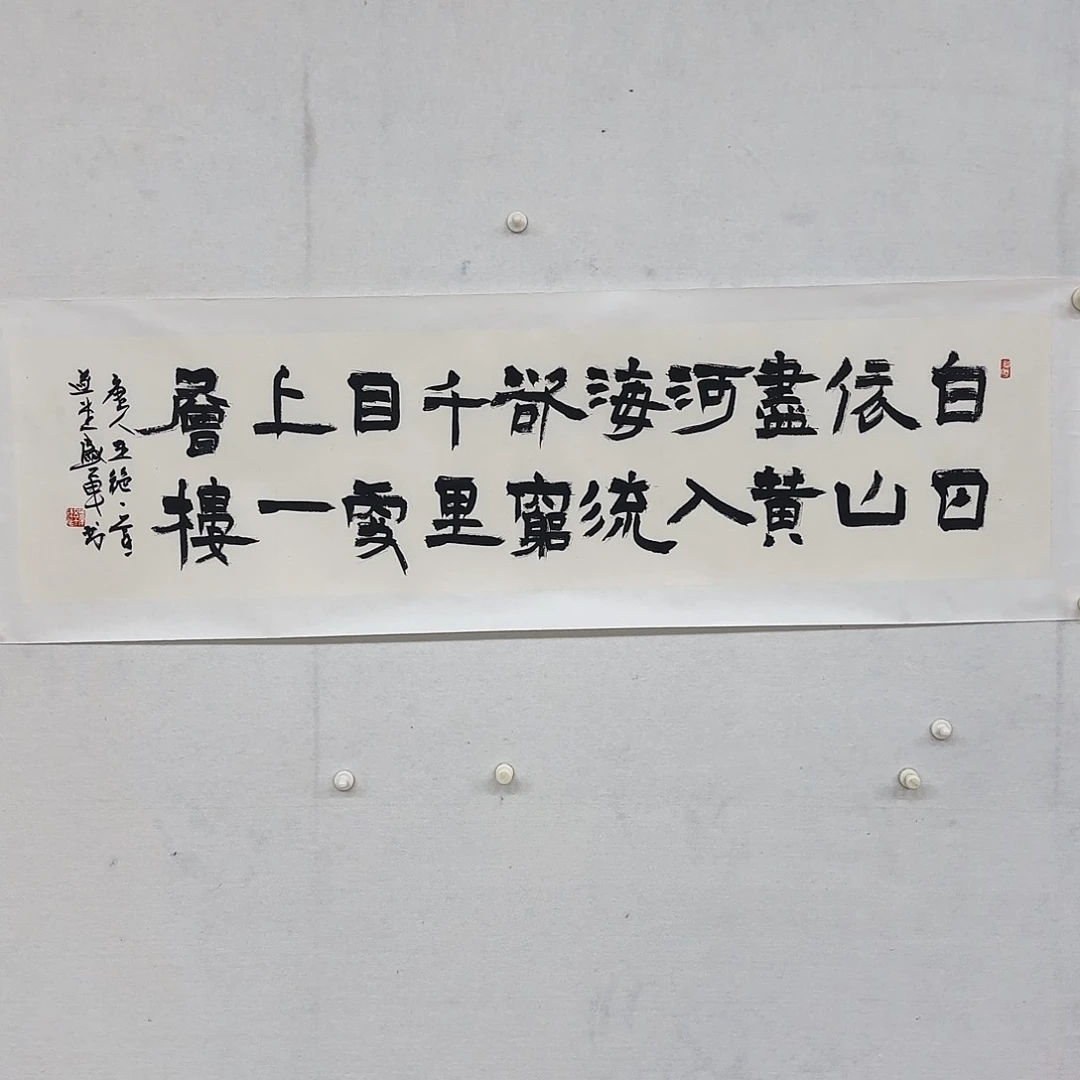 白日
依山
盡黃
河入
海流
欲窮
千里
目更
上一
層樓
唐人五絶一首
盛軍书